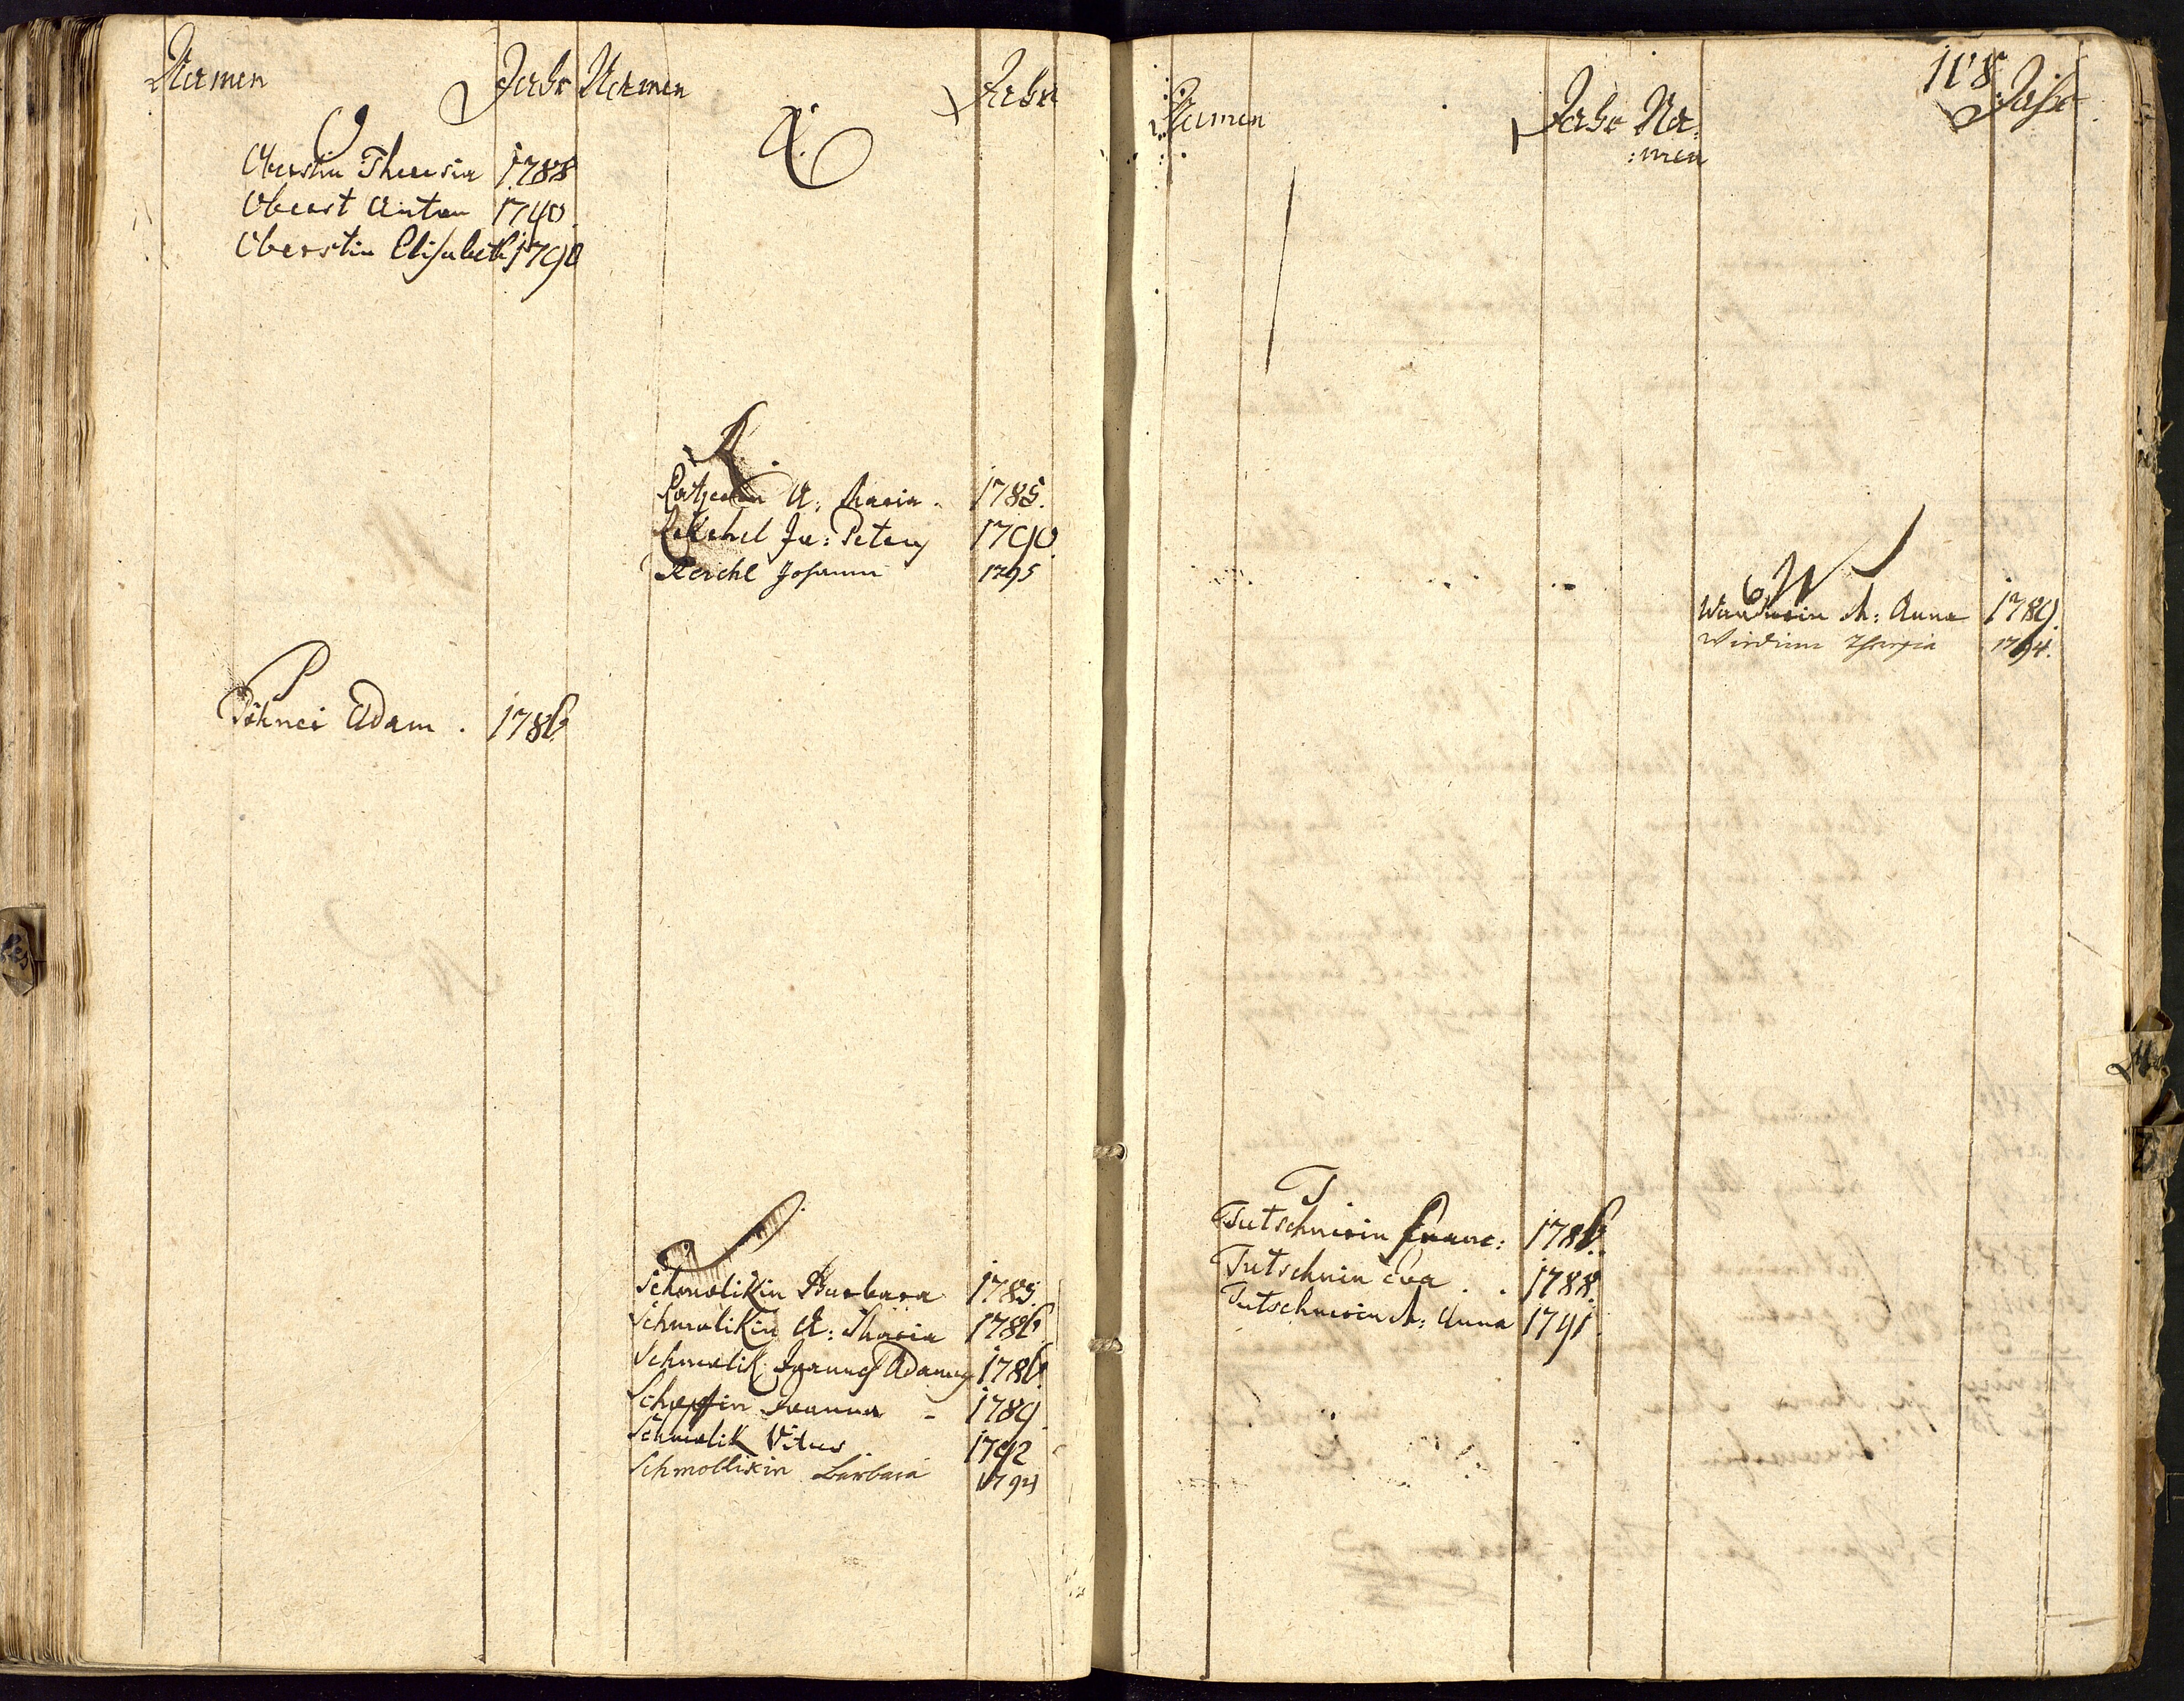 Namen Jahr Namen Jahr
O
Oberstin Theresia 1788
Oberst Anton 1790
Oberstin Elisabeth 1790
P
Pöhner Adam . 1786
Q.
R.
A: Maria . 1785.
Jo: Peterg 1790.
Reichl Johann 1795
S
Schmolikin Barbara 1785.
Schmolikin A: Maria 1786
Schmolik Joanng Adamg 1786.
Joanna - 1789
Schmolik Vitus . 1792
Schmollikin Barbara 1794
118
Namen Jahr Na:
:men
Jahr
T
Tutschnerin Franc: 1786.
Tutschnin Eva . . 1788.
Tutschnerin M: Anna 1791.
W
M: Anna 1789.
Theresia 1794.